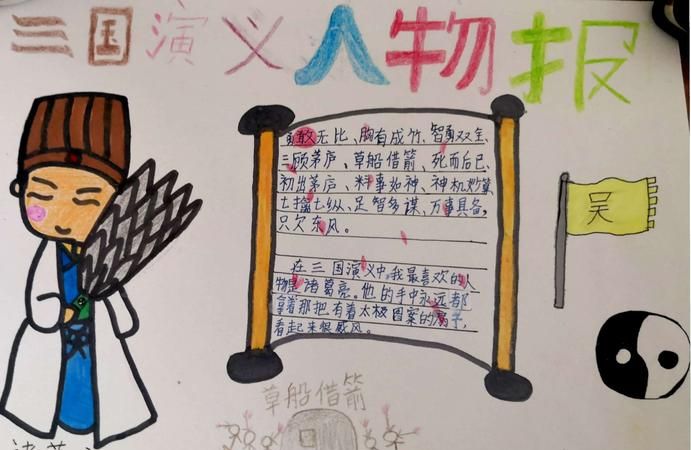 三国演义人物报
勇敢无比、胸有成竹、智勇双全、
三顾茅庐、草船借箭、死而后已、
初出茅庐、料事如神、神机妙算、
七擒七纵、足智多谋、万事具备,
只欠东风。
在三国演义中,我最喜欢的人
物是诸葛亮。他的手中永远都
拿着那把有着太极图案的扇子,
看起来很威风。
吴
草船借箭